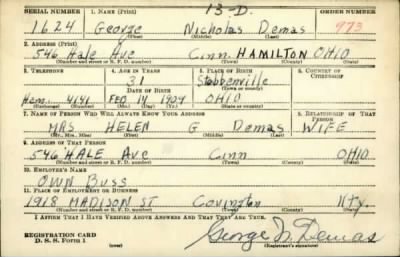 13-D.
SERIAL NUMBER 1. NAME (Print) ORDER NUMBER
1624 George Nicholas Demas 973
(First) (Middle) (Last)
2. ADDRESS (Print)
546 Hale Ave Cinn. HAMILTON OHIO
(Number and street or R. F. D. number) (Town) (County) (State)
3. TELEPHONE 4. AGE IN YEARS 5. PLACE OF BIRTH 6. COUNTRY OF CITIZENSHIP
31 Stubbenville
DATE OF BIRTH (Town or county)
Hem. 4141 FEB 14 1909 OHIO
(Exchange) (Number) (Mo.) (Day) (Yr.) (State or country)
7. NAME OF PERSON WHO WILL ALWAYS KNOW YOUR ADDRESS 8. RELATIONSHIP OF THAT PERSON
MRS HELEN G Demas WIFE
(Mr., Mrs., Miss) (First) (Middle) (Last)
9. ADDRESS OF THAT PERSON
546 HALE Ave Cinn OHIO
(Number and street or R. F. D. number) (Town) (County) (State)
10. EMPLOYER'S NAME
OWN BUSS
11. PLACE OF EMPLOYMENT OR BUSINESS
1918 MADISON ST Covington Kty.
(Number and street or R. F. D. number) (Town) (County) (State)
I AFFIRM THAT I HAVE VERIFIED ABOVE ANSWERS AND THAT THEY ARE TRUE.
REGISTRATION CARD George N. Demas
D. S. S. FORM 1 (over) (Registrant's signature)